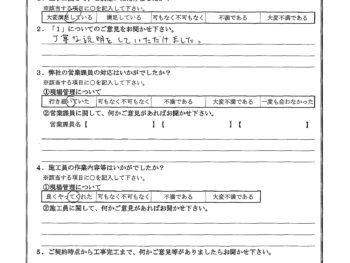 ※該当する項目に○を記入して下さい。
大変満足している 満足している 可も無く不可も無く 不満である 大変不満である
2．「1」についてのご意見をお聞かせ下さい。
丁寧な説明をしていただけました。
3．弊社の営業課員の対応はいかがでしたか？
※該当する項目に○を記入して下さい。
①現場管理について
行き届いていた 可も無く不可も無く 不満である 大変不満である 一度も会わなかった
②営業課員に関して、何かご意見があればお聞かせ下さい。
営業課員名【 】【 】【 】
4．施工員の作業内容等はいかがでしたか？
※該当する項目に○を記入して下さい。
①現場管理について
良くやってくれた 可も無く不可も無く 不満である 大変不満である
②施工員に関して、何かご意見があればお聞かせ下さい。
5．ご契約時点から工事完工まで、何かご意見等がありましたらお聞かせ下さい。